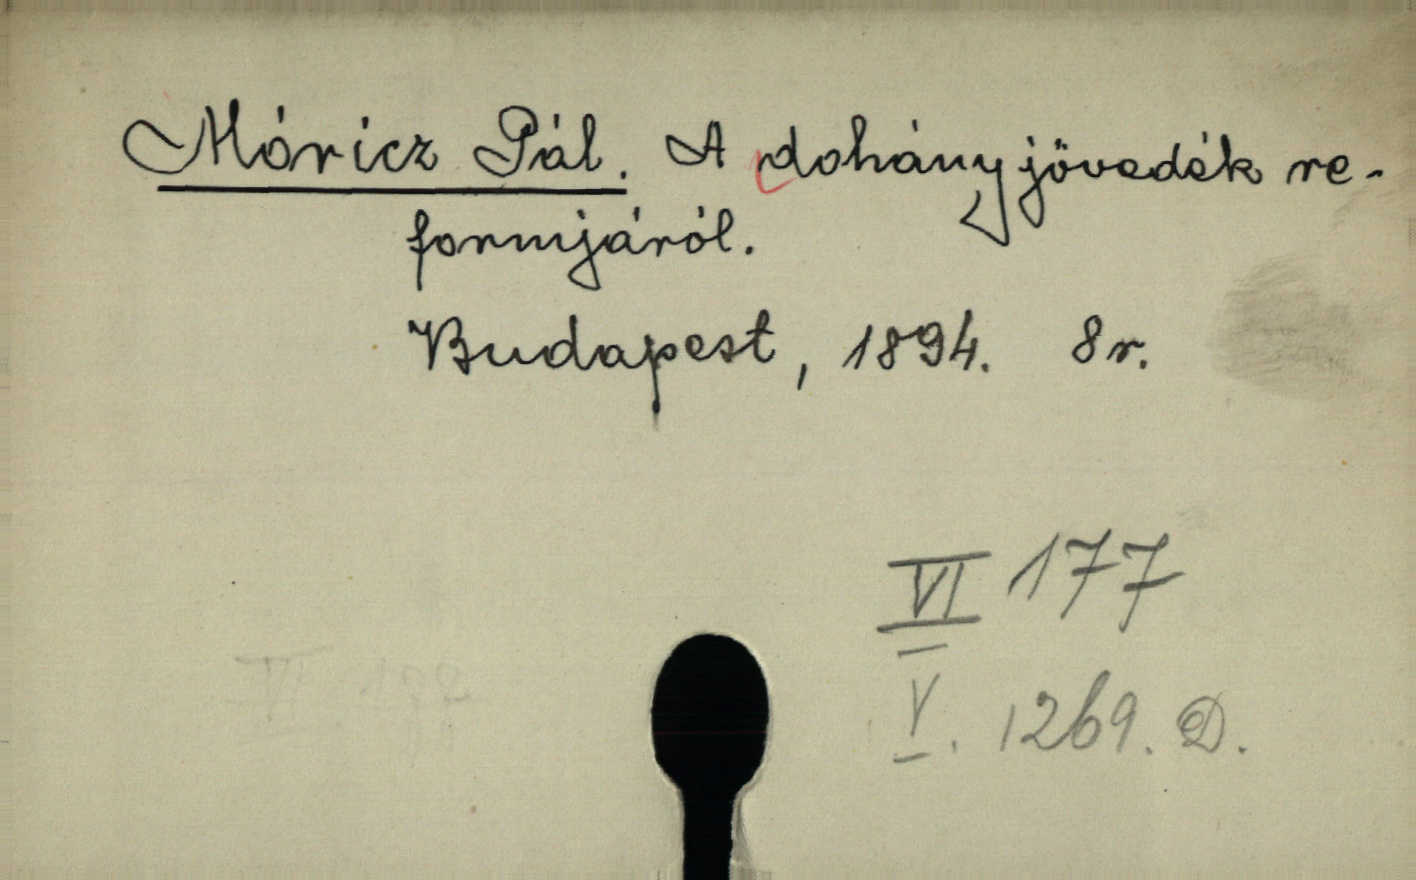 Móricz Pál. A dohányjövedék re-
formjáról.
Budapest, 1894. 8r.
VI 177
V. 1269. D.